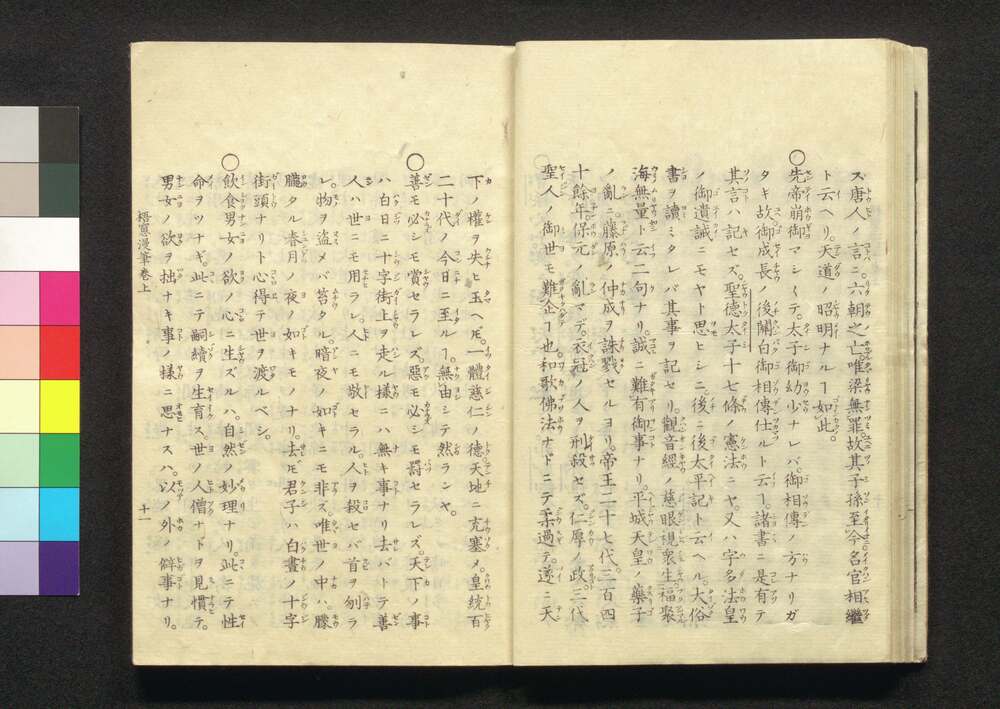 ス唐人ノ言ニ六朝之亡唯梁無罪故其子孫至今名官相繼
ト云ヘリ。天道ノ昭明ナルヿ如此。
○先帝崩御マシ〳〵テ。太子御幼少ナレバ。御相傳ノ方ナリガ
タキ故。御成長ノ後關白御相傳仕ルト云ヿ諸書ニ是有テ
其言ハ記セズ。聖德太子十七條ノ憲法ニヤ。又ハ宇多法皇
ノ御遺誡ニモヤト思ヒシニ。後ニ後太平記ト云ヘル。大俗
書ヲ讀ミタレバ其事ヲ記セリ。觀音經ノ慈眼視衆生福聚
海無量ト云二句ナリ。誠ニ難有御事ナリ。平城天皇ノ藥子
ノ亂ニ。藤原ノ仲成ヲ誅戮セルヨリ。帝王二十七代。三百四
十餘年。保元ノ亂マデ。衣冠ノ人ヲ刑殺セズ。仁厚ノ政三代
聖人ノ御世モ難企ヿ也。和歌佛法ナドニテ柔過テ。遂ニ天
下ノ權ヲ失ヒ玉ヘ𪜈。一體慈仁ノ德天地ニ充塞メ。皇統百
二十代ノ今日ニ至ルヿ。無由シテ然ランヤ。
○善モ必シモ賞セラレズ。惡モ必シモ罸セラレズ。天下ノ事
ハ白日ニ十字街上ヲ走ル様ニハ無キ事ナリ。去バトテ善
人ハ世ニモ用ラレ。人ニモ敬セラル。人ヲ殺セバ首ヲ刎ラ
レ。物ヲ盗メバ笞タル。暗夜ノ如キニモ非ズ。唯世ノ中ハ。朦
朧タル春月ノ夜ノ如キモノナリ。去𪜈君子ハ白晝ノ十字
街頭ナリト心得テ世ヲ渡ルベシ。
○飲食男女ノ欲ノ心ニ生ズルハ。自然ノ妙理ナリ。此ニテ性
命ヲツナギ。此ニテ嗣續ヲ生育ス。世ノ人僧ナドヲ見慣テ。
男女ノ欲ヲ拙ナキ事ノ様ニ思ナスハ。以ノ外ノ僻事ナリ。
橙窻漫筆巻上　十一